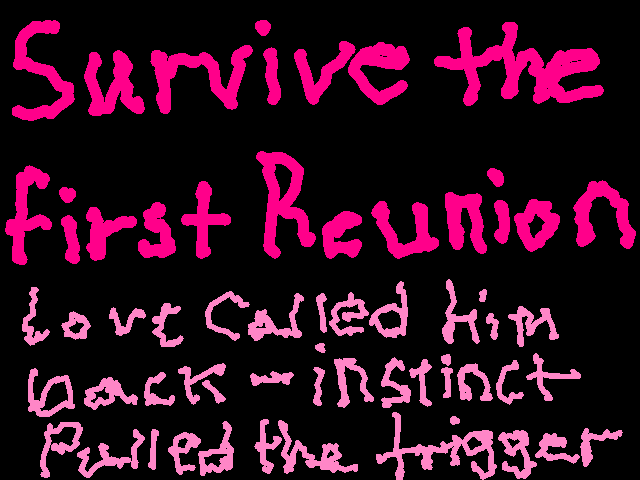 Survive the
first Reunion
Love Called Him
back - instinct
Pulled the trigger